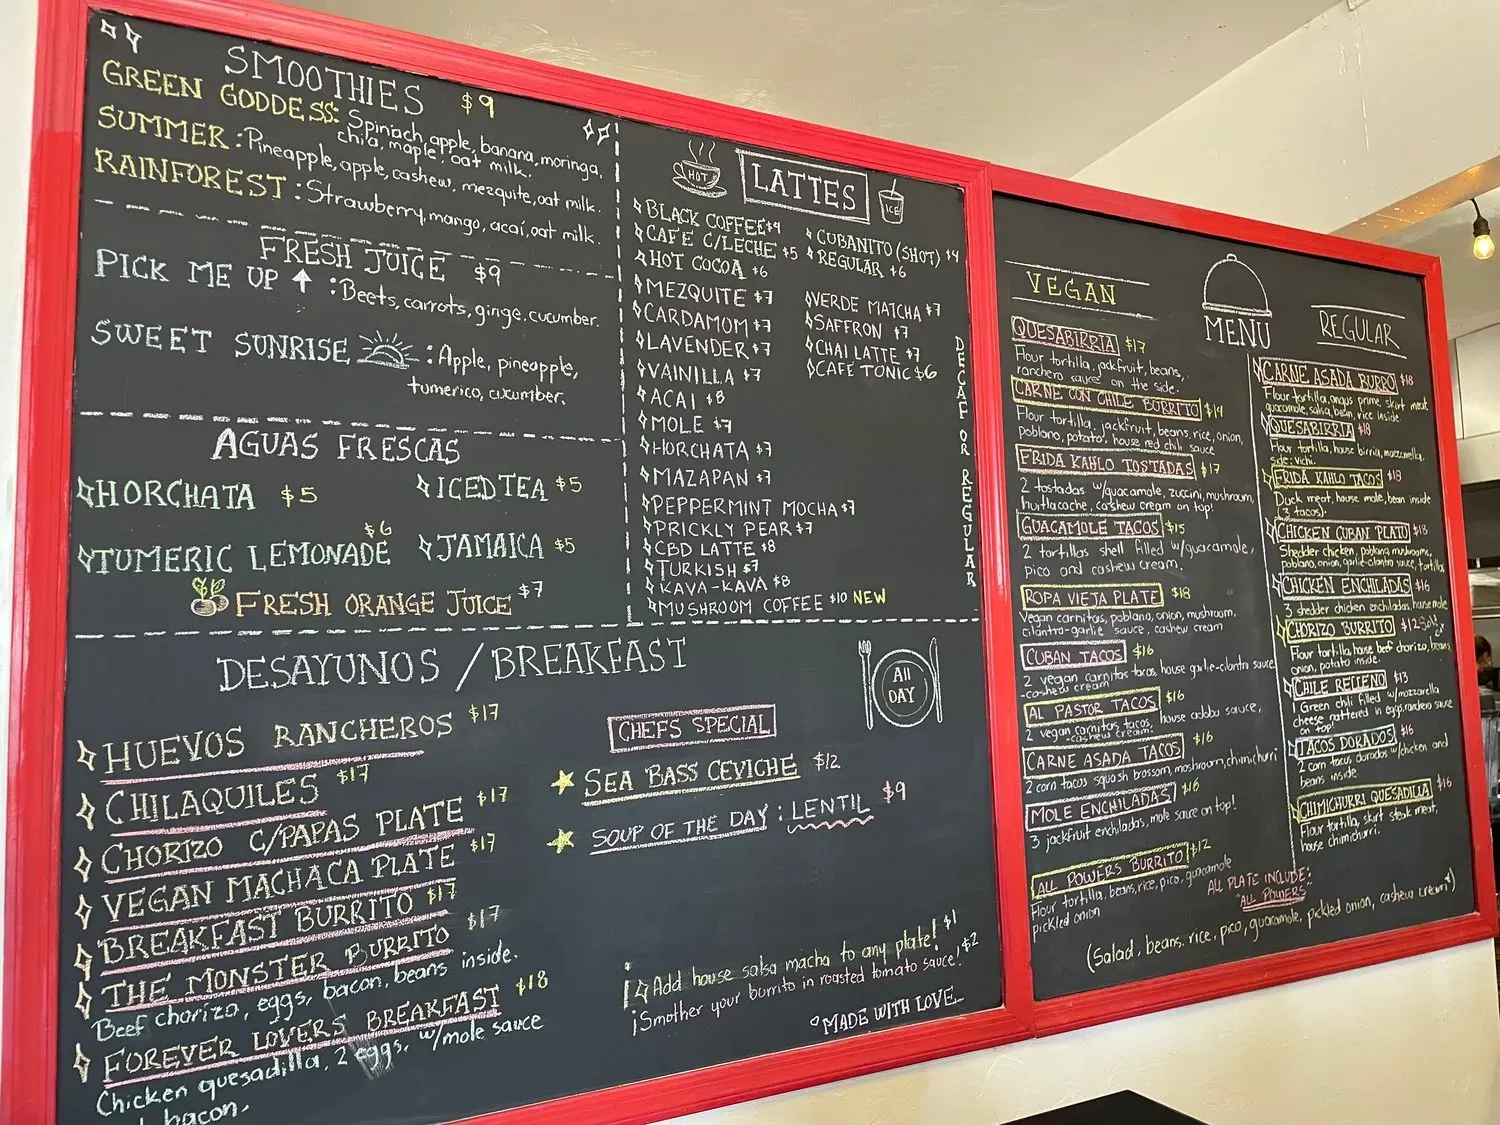 SMOOTHIES $9
GREEN GODDESS: Spinach, apple, banana, moringa,
chia, maple, oat milk.
SUMMER: Pineapple, apple, cashew, mezquite, oat milk.
RAINFOREST: Strawberry, mango, acaí, oat milk.
FRESH JUICE $9
PICK ME UP ↑: Beets, carrots, ginge, cucumber.
SWEET SUNRISE: Apple, pineapple,
tumerico, cucumber.
AGUAS FRESCAS
HORCHATA $5
ICED TEA $5
TUMERIC LEMONADE $6
JAMAICA $5
FRESH ORANGE JUICE $7
HOT
LATTES
ICE
BLACK COFFEE $4
CAFE C/LECHE $5
HOT COCOA $6
MEZQUITE $7
CARDAMOM $7
LAVENDER $7
VAINILLA $7
ACAI $8
MOLE $7
HORCHATA $7
MAZAPAN $7
PEPPERMINT MOCHA $7
PRICKLY PEAR $7
CBD LATTE $8
TURKISH $7
KAVA-KAVA $8
MUSHROOM COFFEE $10 NEW
CUBANITO (SHOT) $4
REGULAR $6
VERDE MATCHA $7
SAFFRON $7
CHAI LATTE $7
CAFE TONIC $6
DECAF OR REGULAR
DESAYUNOS / BREAKFAST
All
DAY
HUEVOS RANCHEROS $17
CHILAQUILES $17
CHORIZO C/PAPAS PLATE $17
VEGAN MACHACA PLATE $17
BREAKFAST BURRITO $17
THE MONSTER BURRITO $17
Beef chorizo, eggs, bacon, beans inside.
FOREVER LOVERS BREAKFAST $18
Chicken quesadilla, 2 eggs, w/mole sauce
bacon.
CHEFS SPECIAL
SEA BASS CEVICHE $12
SOUP OF THE DAY: LENTIL $9
¡Add house salsa macha to any plate! $1
¡Smother your burrito in roasted tomato sauce! $2
MADE WITH LOVE
MENU
VEGAN
QUESABIRRIA $17
Flour tortilla, jackfruit, beans,
ranchero sauce on the side.
CARNE CON CHILE BURRITO $14
Flour tortilla, jackfruit, beans, rice, onion,
poblano, potato, house red chili sauce
FRIDA KAHLO TOSTADAS $17
2 tostadas w/guacamole, zuccini, mushroom,
huitlacoche, cashew cream on top!
GUACAMOLE TACOS $15
2 tortillas shell filled w/guacamole,
pico and cashew cream.
ROPA VIEJA PLATE $18
Vegan carnitas, poblano, onion, mushroom,
cilantro-garlic sauce, cashew cream
CUBAN TACOS $16
2 vegan carnitas tacos, house garlic-cilantro sauce
-cashew cream
AL PASTOR TACOS $16
2 vegan carnitas tacos, house adobu sauce,
-cashew cream.
CARNE ASADA TACOS $16
2 corn tacos squash brossom, moshroom, chimichurri
MOLE ENCHILADAS $16
3 jackfruit enchiladas, mole sauce on top!
ALL POWERS BURRITO $12
Flour tortilla, beans, rice, pico, guacamole
pickled onion
REGULAR
CARNE ASADA BURRO $18
Flour tortilla, angus prime, skirt meat,
guacamole, salsa, bean, rice inside.
QUESABIRRIA $18
Flour tortilla, house birria, mozzarella,
side: vichi.
FRIDA KAHLO TACOS $18
Duck meat, house mole, bean inside
(3 tacos).
CHICKEN CUBAN PLATO $18
Shedder chicken, poblano, mushrooms,
poblano, onion, garlic-cilantro sauce, tortillas
CHICKEN ENCHILADAS $16
3 shedder chicken enchiladas, house mole
CHORIZO BURRITO $12
Flour tortilla, house beef chorizo, beans,
onion, potato inside.
CHILE RELLENO $13
1 Green chili filled w/mozzarella
cheese nattered in eggs, ranchero sauce
on top!
TACOS DORADOS $16
2 corn tacos dorados w/chicken and
beans inside
CHIMICHURRI QUESADILLA $16
Flour tortilla, skirt steak meat,
house chimichurri.
ALL PLATE INCLUDE:
"ALL POWERS"
(Salad, beans, rice, pico, guacamole, pickled onion, cashew cream*)